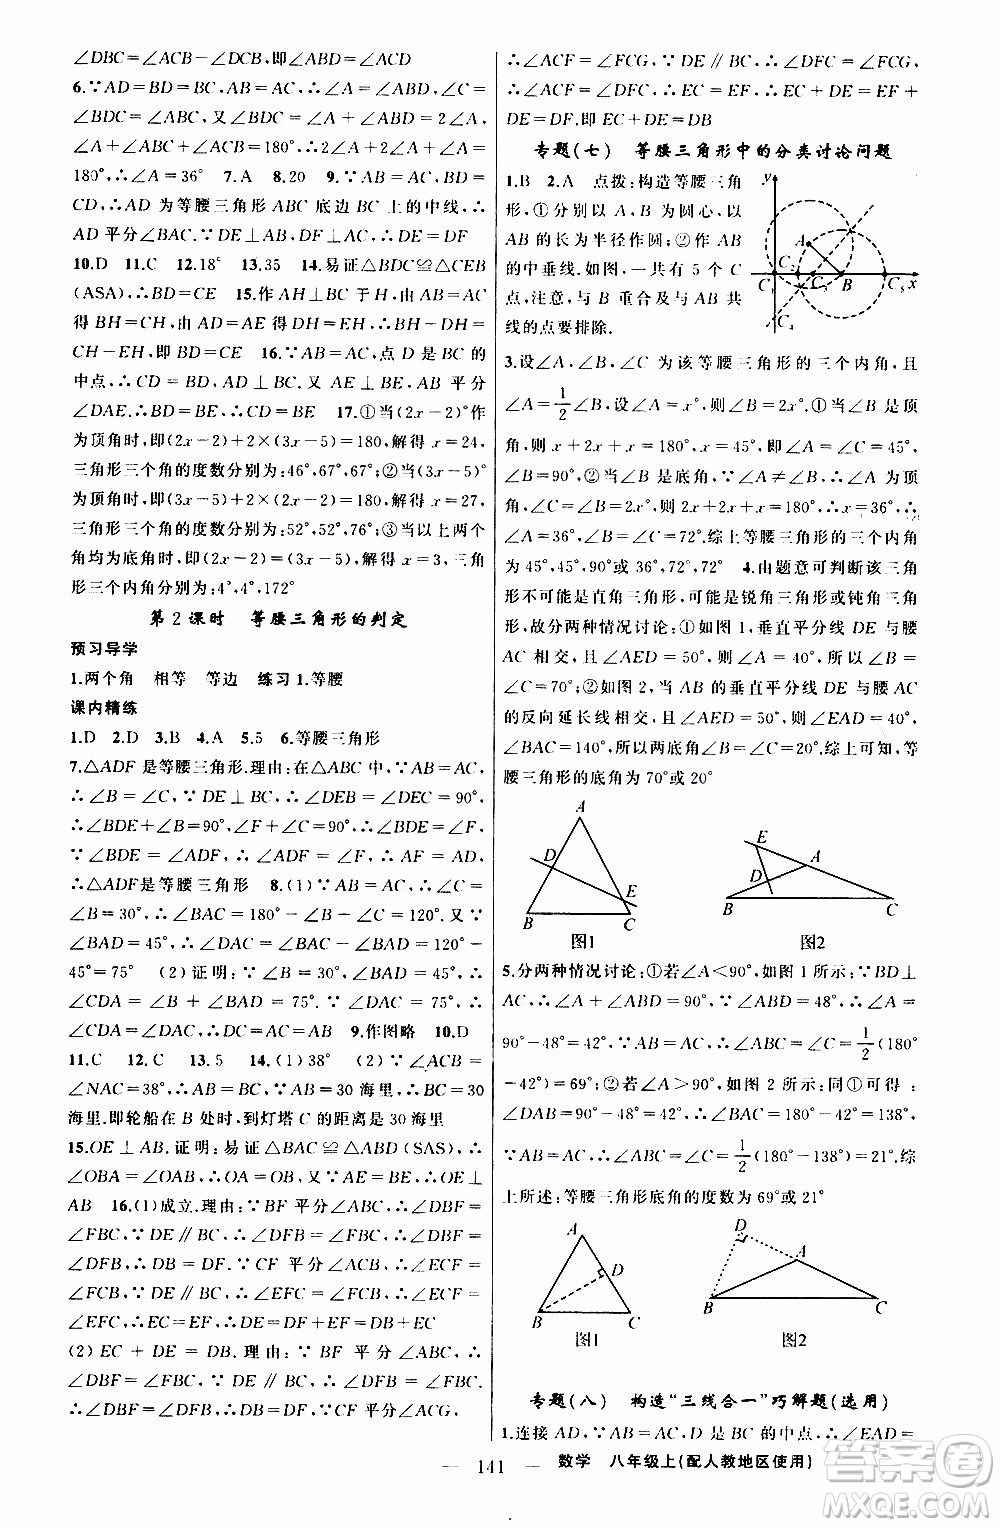 ∠DBC=∠ACB-∠DCB,即∠ABD=∠ACD
6.∵AD=BD=BC,AB=AC,∴∠A=∠ABD,∠C=
∠BDC=∠ABC,又∠BDC=2∠A,∴∠ABC=2∠A,
∠A+∠ABC+∠ACB=180°,∴∠A+2∠A+2∠A=
180°,∴∠A=36° 7.A 8.20 9.∵AB=AC,BD=
CD,∴AD 为等腰三角形 ABC 底边 BC 上的中线,∴
AD 平分∠BAC.∵DE⊥AB,DF⊥AC,∴DE=DF
10.D 11.C 12.18° 13.35 14.易证△BDC≌△CEB
(ASA),∴BD=CE 15.作 AH⊥BC 于 H,由 AB=AC
得 BH=CH,由 AD=AE 得 DH=EH,∴BH-DH=
CH-EH,即 BD=CE 16.∵AB=AC,点 D 是 BC 的
中点,∴CD=BD,AD⊥BC.又 AE⊥BE,AB 平分
∠DAE.∴BD=BE,∴CD=BE 17.①当(2x-2)°作
为顶角时,即(2x-2)+2×(3x-5)=180,解得 x=24,
三角形三个角的度数分别为:46°,67°,67°;②当(3x-5)°
为顶角时,(3x-5)+2×(2x-2)=180,解得 x=27,
三角形三个角的度数分别为:52°,52°,76°;③当以上两个
角均为底角时,2x-2=3x-5,解得 x=3,三角
形三个内角分别为:4°,4°,172°
第 2 课时 等腰三角形的判定
预习导学
1.两个角 相等 等边 练习 1.等腰
课内精练
1.D 2.D 3.B 4.A 5.5 6.等腰三角形
7.△ADF 是等腰三角形.理由:在△ABC 中,∵AB=AC,
∴∠B=∠C,∵DE⊥BC,∴∠DEB=∠DEC=90°,
∴∠BDE+∠B=90°,∠F+∠C=90°,∴∠BDE=∠F,
∵∠BDE=∠ADF,∴∠ADF=∠F,∴AF=AD,
∴△ADF是等腰三角形 8.(1)∵AB=AC,∴∠C=
∠B=30°,∴∠BAC=180°-30°-30°=120°.又∵
∠BAD=45°,∴∠DAC=∠BAC-∠BAD=120°-
45°=75° (2)证明:∵∠ADC=∠B+∠BAD,∴
∠CDA=30°+45°=75°.又∵∠DAC=75°,∴
∠CDA=∠DAC,∴DC=AC=AB 9.作图略 10.D
11.C 12.C 13.5 14.(1)38° (2)∵∠ACB=
∠NAC=38°,∴∠BAC=∠ACB,∵AB=30 海里,∴BC=30
海里.即轮船在 B 处时,到灯塔 C 的距离是 30 海里
15.OE⊥AB.证明:易证△BAC≌△ABD(SAS),∴
∠OBA=∠OAB,∴OA=OB,又∵AE=BE,∴OE⊥
AB 16.(1)成立.理由:∵BF 平分∠ABC,∴∠DBF=
∠FBC,∵DE∥BC,∴∠DFB=∠FBC,∴∠DBF=
∠DFB,∴DB=DF.∵CF 平分∠ACB,∴∠ECF=
∠FCB,∵DE∥BC,∴∠EFC=∠FCB,∴∠ECF=
∠EFC,∴EC=EF,∴DE=DF+EF=DB+EC
(2)EC+DE=DB.理由:∵BF 平分∠ABC,∴
∠DBF=∠FBC,∵DE∥BC,∴∠DFB=∠FBC,
∴∠DBF=∠DFB,∴DB=DF.∵CF 平分∠ACG,
∴∠ACF=∠FCG,∵DE∥BC,∴∠DFC=∠FCG,
∴∠ACF=∠DFC,∴EC=EF,∴EC+DE=EF+
DE=DF.即 EC+DE=DB
专题(七) 等腰三角形中的分类讨论问题
1.B 2.A 点拨:构造等腰三角
形,①分别以 A、B 为圆心,以
AB 的长为半径作圆;②作 AB
的中垂线.如图,一共有 5 个 C
点,注意,与 B 重合及与 AB 共
线的点要排除.
y
A
B
x
3.设∠A、∠B、∠C 为该等腰三角形的三个内角,且
∠A=1/2∠B,设∠A=x°,则∠B=2x°.①当∠B 是顶
角,则 x+2x+x=180°,x=45°,即∠A=∠C=45°,
∠B=90°;②当∠B 是底角,∵∠A≠∠B,∴∠A
∠C=∠B=2x°,则 2x+2x+x=180°,∴x=36°,∴
∠A=36°,∠B=∠C=72°.综上等腰三角形的各角为
45°,45°,90°或 36°,72°,72° 4.由题意可判断该三角
形不可能是直角三角形,可能是锐角三角形或钝角三角
形,故分两种情况讨论:①如图 1,垂直平分线 DE 与腰
AC 相交,∵∠AED=50°,∴∠A=40°,∴∠B=
∠C=70°;②如图 2,当 AB 的垂直平分线 DE 与腰 AC
的反向延长线相交,∵∠AED=50°,∴∠EAD=40°,
∠BAC=140°,所以∠B=∠C=20°.综上可知,等
腰三角形的底角为 70°或 20°
A
D
E
B
C
图1
E
D
A
B
C
图2
5.分两种情况讨论:①若∠A<90°,如图 1 所示:∵BD⊥
AC,∴∠A+∠ABD=90°,∵∠ABD=48°,∴∠A=
90°-48°=42°,∵AB=AC,∴∠ABC=∠C=1/2(180°
-42°)=69°;②若∠A>90°,如图 2 所示:同①可得:
∠DAB=90°-48°=42°,∴∠BAC=180°-42°=138°,
∵AB=AC,∴∠ABC=∠C=1/2(180°-138°)=21°.综
上所述:等腰三角形底角的度数为 69°或 21°
A
D
B
C
图1
D
A
B
C
图2
专题(八) 构造“三线合一”巧解题(选用)
1.连接 AD,∵AB=AC,D 是 BC 的中点,∴∠EAD=
— 141 — 数学 八年级上(配人教地区使用)
答案圈
MXQE.COM